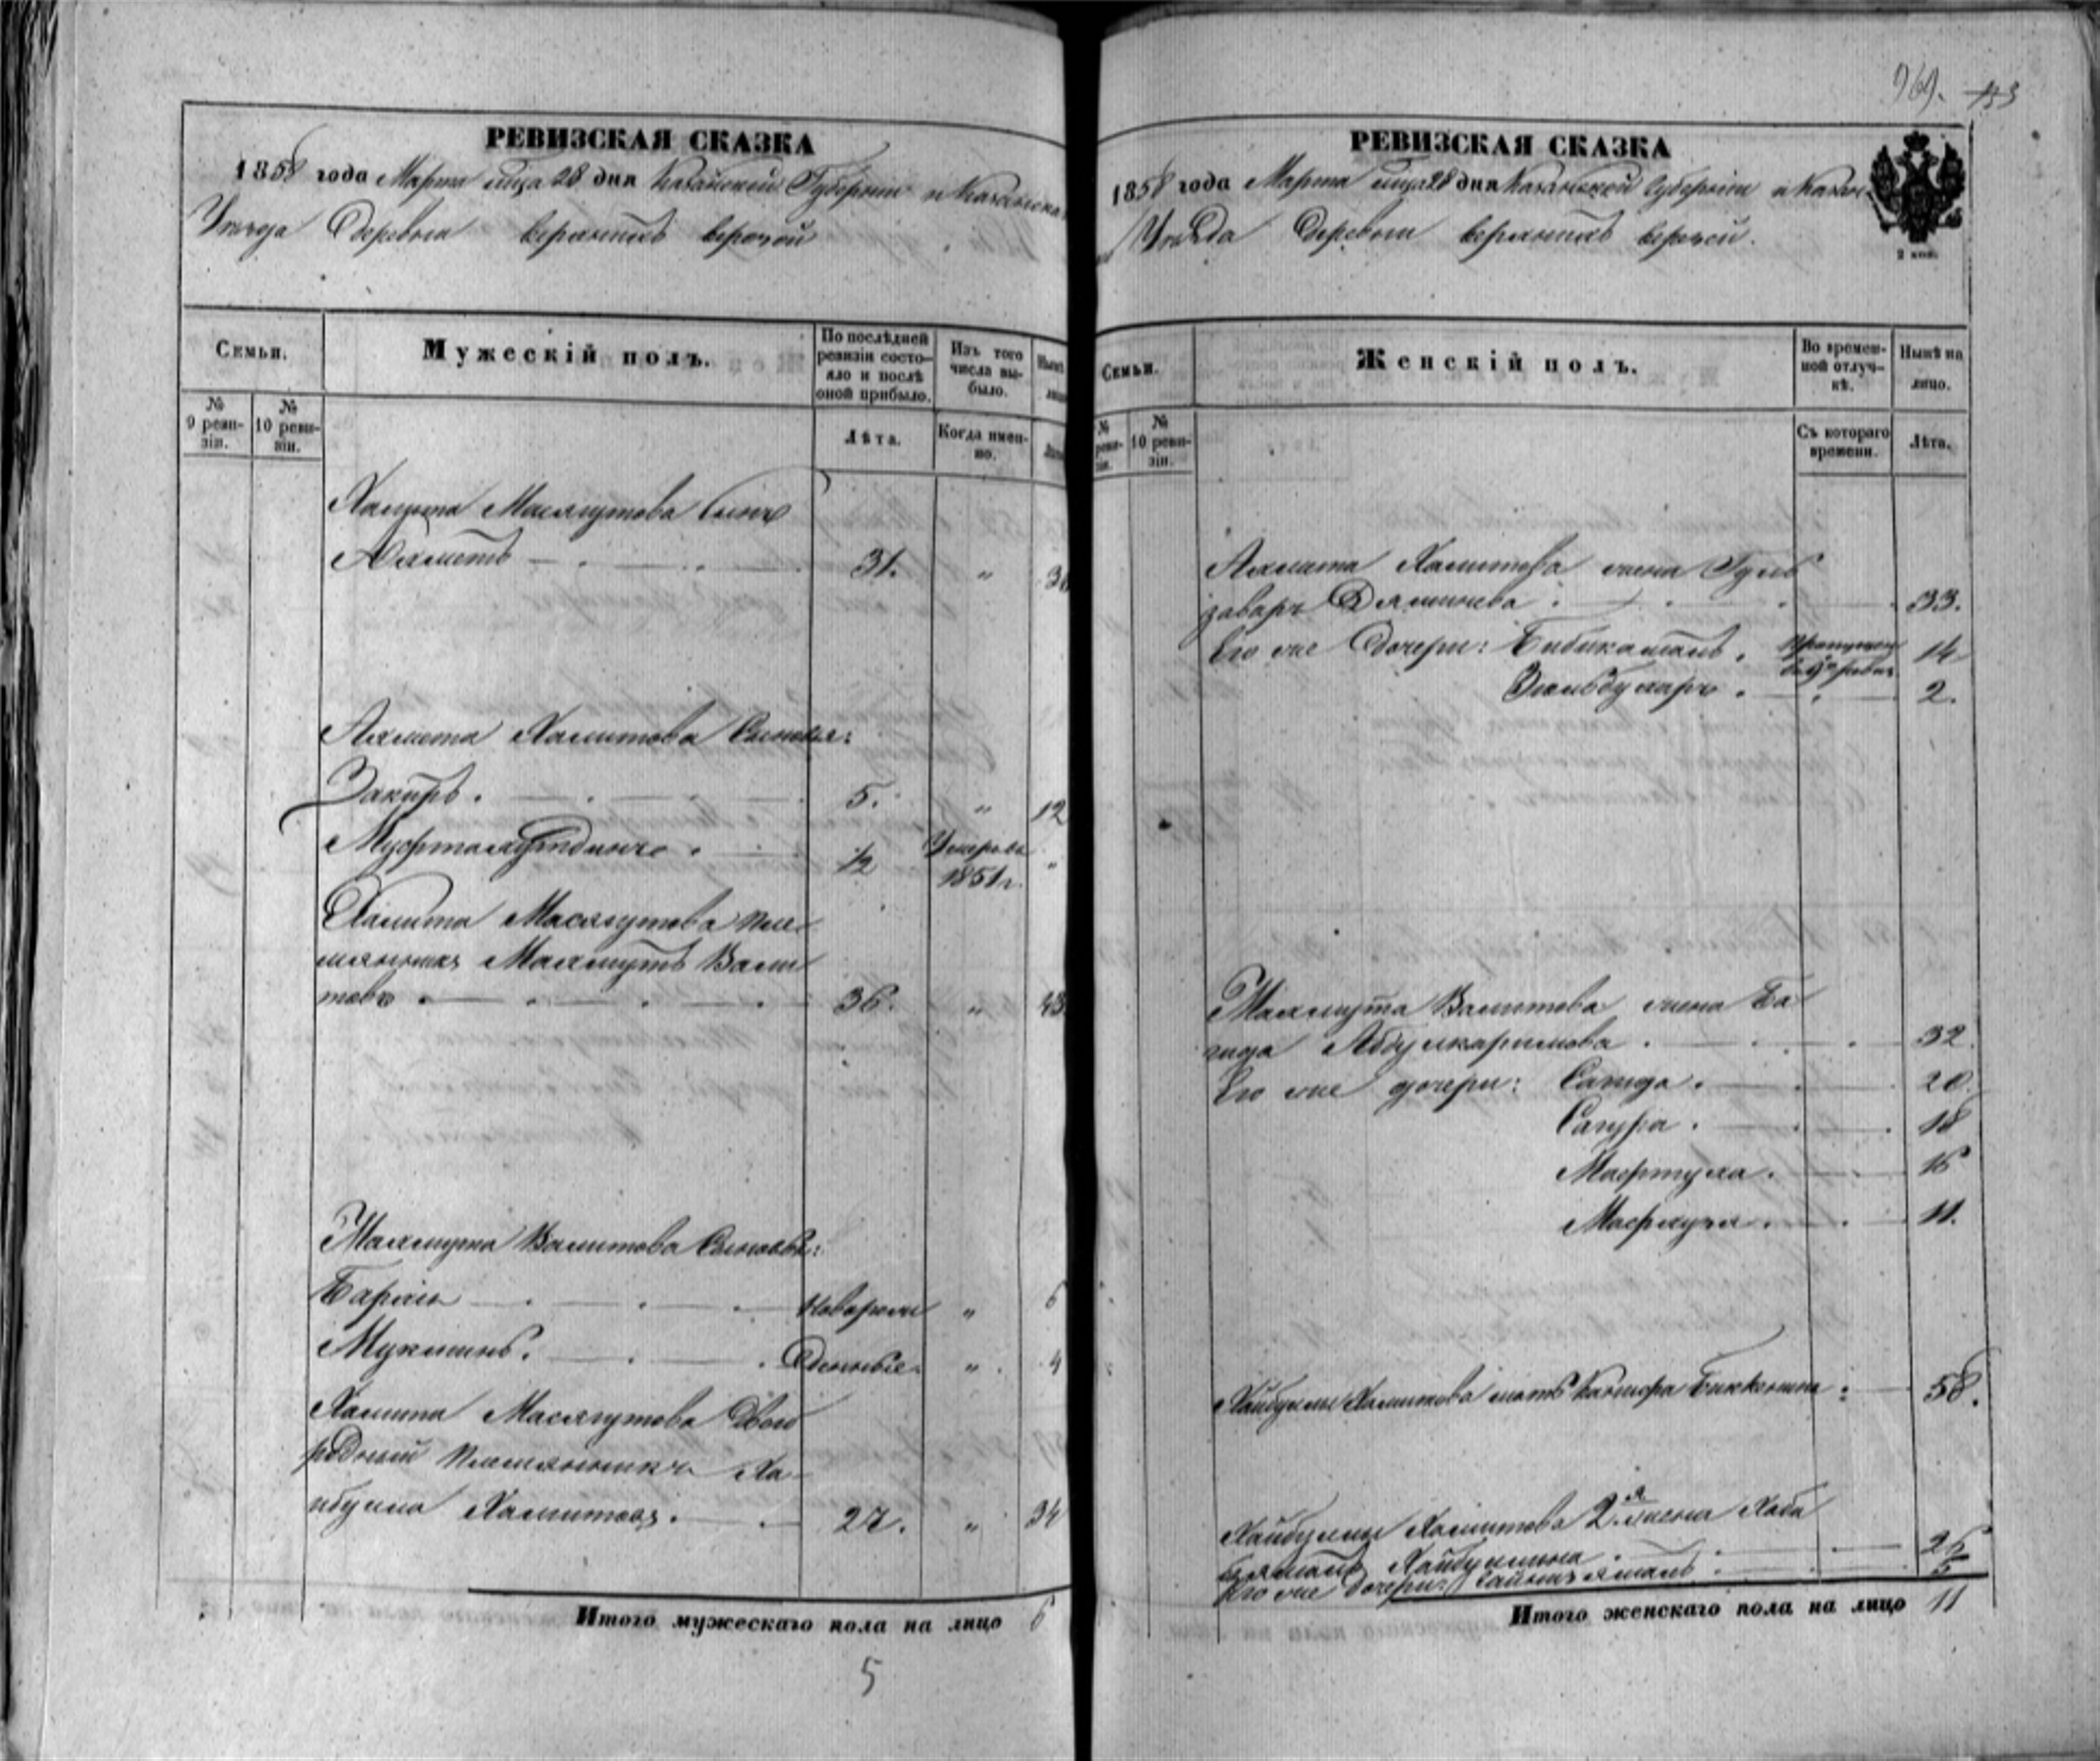 РЕВИЗСКАЯ СКАЗКА
1858 года Марта м-ца 28 дня Казанской Губернии и Казанска
Уезда Деревни
Семьи.
Мужескій полъ.
По послѣдней ревизіи состояло и послѣ оной прибыло.
Изъ того числа выбыло.
№ 9 ревизіи.
№ 10 ревизіи.
Лѣта.
Когда именно.
Хамита Масягутова сынъ
Ахметъ 31. „
Ахмета Хамитова Сыновья:
Закиръ. 5. „ 12
1/2 Умеръ въ 1851 г. „
Хамита Масягутова пле-
мянникъ Махмутъ Вали-
товъ 36. „ 43
Махмута Валитова Сыновья:
Новорож „ 6
денные „ 4
Хамита Масягутова Двою
родный племянникъ Ха-
ибулла Хамитовъ. 27. „ 34
Итого мужескаго пола на лицо 6
5
969. 133
РЕВИЗСКАЯ СКАЗКА
1858 года Марта м-ца 28 дня Казанской Губерніи и Казан-
Уезда Деревни
2 коп.
Семьи.
Женскій полъ.
Во временной отлучкѣ.
Нынѣ на лицо.
№ 10 ревизіи.
Съ котораго времени.
Лѣта.
Ахмета Хамитова жена Гуль
заваръ 33.
Его же Дочери: Бибикамалъ. 14
2.
Махмута Валитова жена Ба
гида Абдулкаримова. 32.
Его же дочери: Сагида. 20.
Сагура. 18
Мафтуха. 16
11.
Хайбуллы Хамитова мать 58.
Хайбуллы Хамитова 2я жена Хаби
бямалъ Хайбуллина. 26
Его же дочери: 5
Итого женскаго пола на лицо 11